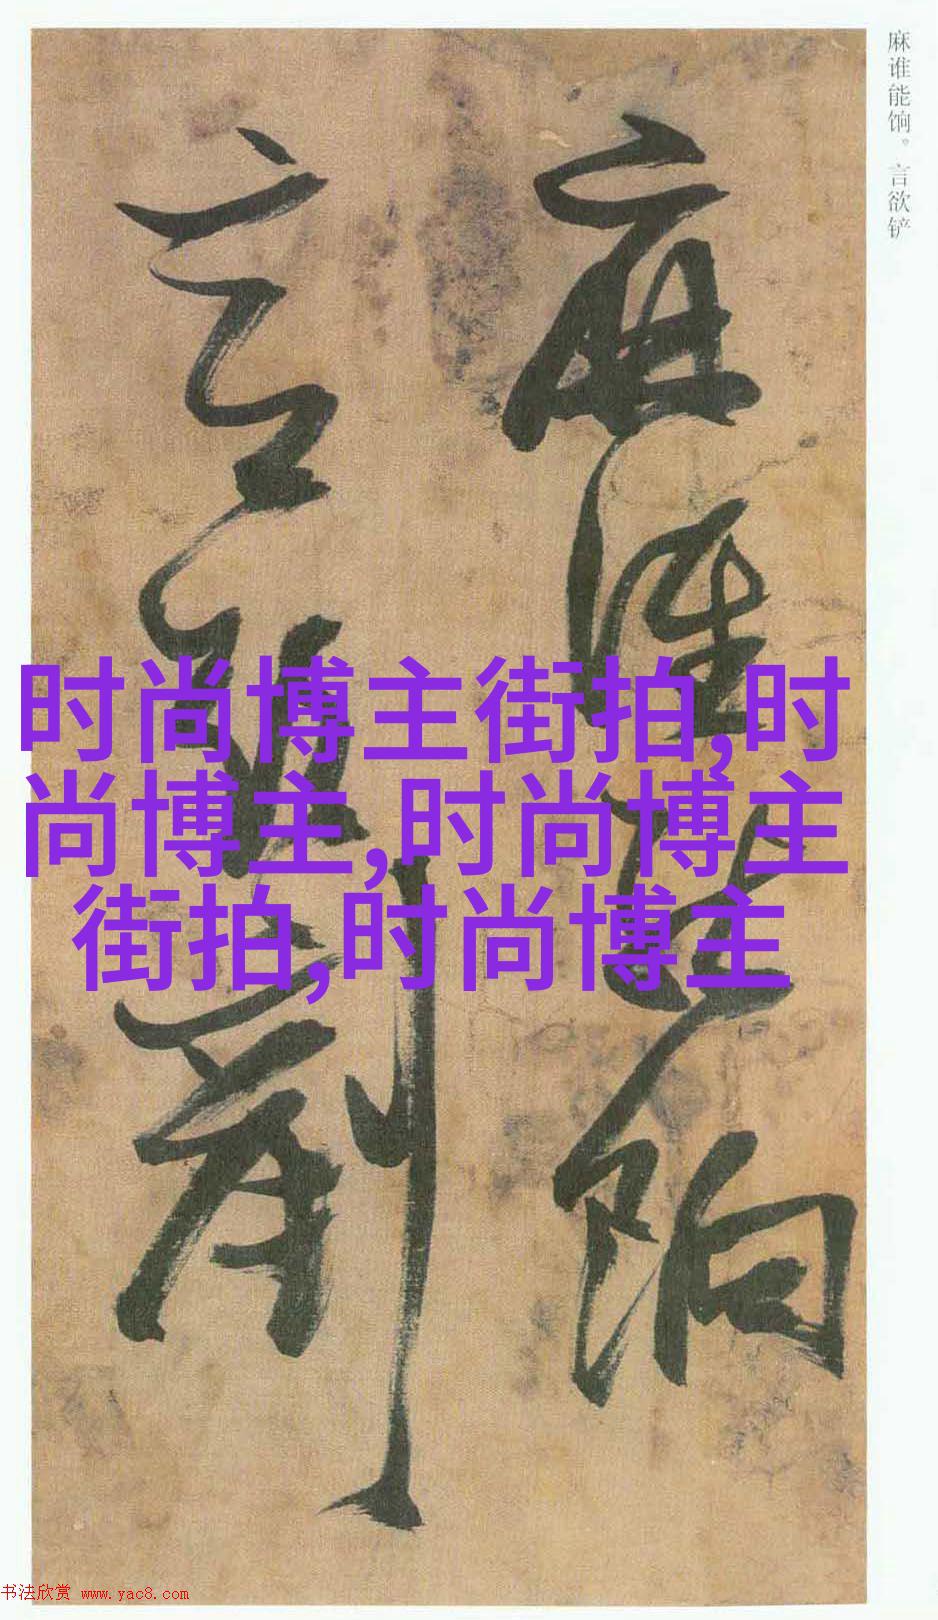 麻谁能饷。言欲铲
麻谁能饷
言欲剷
时尚博主街拍,时
尚博主,时尚博主
街拍,时尚博主
书法欣赏 www.yac8.com